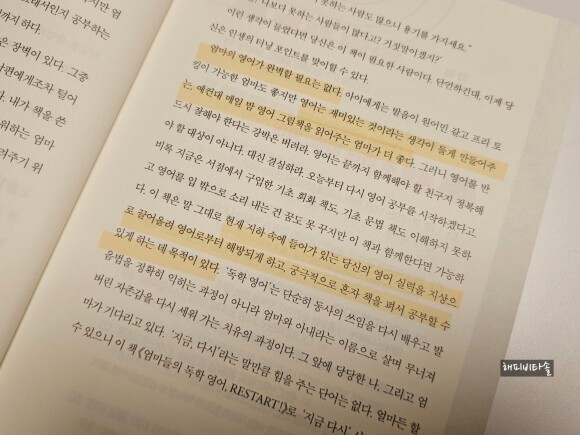 래테서인지 공부하는
까지 하다.
은 장벽이 있다. 그중
남편에게조차 털어
다. 내가 책을 쓴
위하는 엄마
려주기 위
못하는 사람도 많으니 용기를 가지세요."
나보다 못하는 사람들이 많다고? 거짓말이겠지?'
이런 생각이 들었다면 당신은 이 책이 필요한 사람이다. 단언하건대, 이제 당
신은 인생의 터닝 포인트를 맞이할 수 있다.
엄마의 영어가 완벽할 필요는 없다. 아이에게는 발음이 원어민 같고 프리 토
킹이 가능한 엄마도 좋지만 영어는 재미있는 것이라는 생각이 들게 만들어주
는, 예컨대 매일 밤 영어 그림책을 읽어주는 엄마가 더 좋다. 그러니 영어를 반
드시 잘해야 한다는 강박은 버려라. 영어는 끝까지 함께해야 할 친구지 정복해
야 할 대상이 아니다. 대신 결심하라. 오늘부터 다시 영어 공부를 시작하겠다고.
비록 지금은 서점에서 구입한 기초 회화 책도, 기초 문법 책도 이해하지 못하
고 영어를 입 밖으로 소리 내는 건 꿈도 못 꾸지만 이 책과 함께한다면 가능하
다. 이 책은 말 그대로 현재 지하 속에 들어가 있는 당신의 영어 실력을 지상으
로 끌어올려 영어로부터 해방되게 하고, 궁극적으로 혼자 책을 펴서 공부할 수
있게 하는 데 목적이 있다. '독학 영어'는 단순히 동사의 쓰임을 다시 배우고 발
음법을 정확히 익히는 과정이 아니라 엄마와 아내라는 이름으로 살며 무너져
버린 자존감을 다시 세워 가는 치유의 과정이다. 그 앞에 당당한 나, 그리고 엄
마가 기다리고 있다. '지금, 다시'라는 말만큼 힘을 주는 단어는 없다. 얼마든 할
수 있으니 이 책 《엄마들의 독학 영어, RESTART!》로 '지금 다시'
해피비타솔